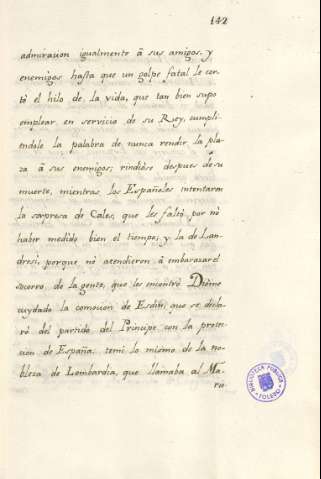 142
admiracion igualmente â sus amigos, y
enemigos hasta que un golpe fatal le cor-
tò el hilo de la vida, que tan bien supo
emplear en servicio de su Rey, cumpli-
endole la palabra de nunca rendir la pla-
za â sus enemigos; rindiòse despues de su
muerte, mientras los Españoles intentaron
la sorpresa de Cales, que les faltò por nò
haber medido bien el tiempo; y la de Lan-
dresi, porque nò atendieron â embarazar el
socorro de la gente, que les encontrò. Diòme
cuydado la comocion de que se decla-
rò del partido del Principe con la protec-
cion de España, temi lo mismo de la no-
bleza de Lombardia, que llamaba al Ma-
ris
BIBLIOTECA PUBLICA
TOLEDO